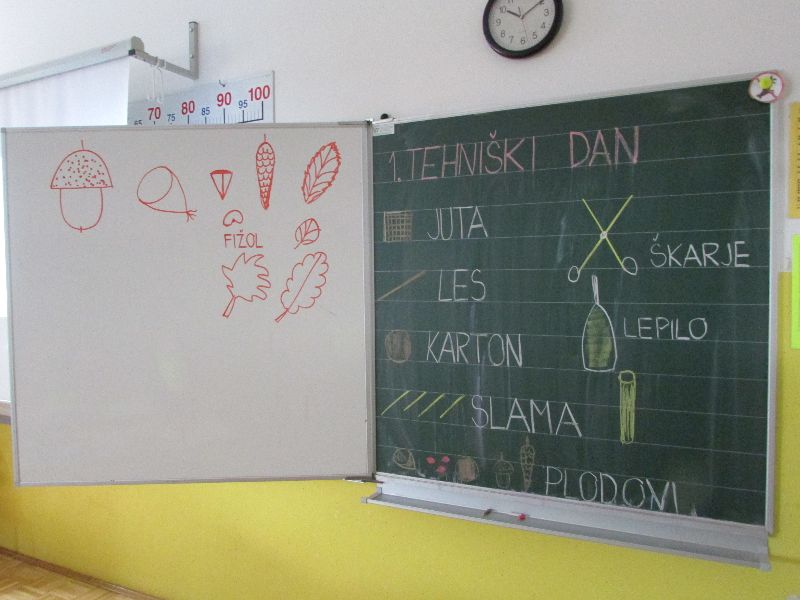 70 80 90 100
65 75 85 95
FIŽOL
1. TEHNIŠKI DAN
JUTA
ŠKARJE
LES
LEPILO
KARTON
SLAMA
PLODOVI